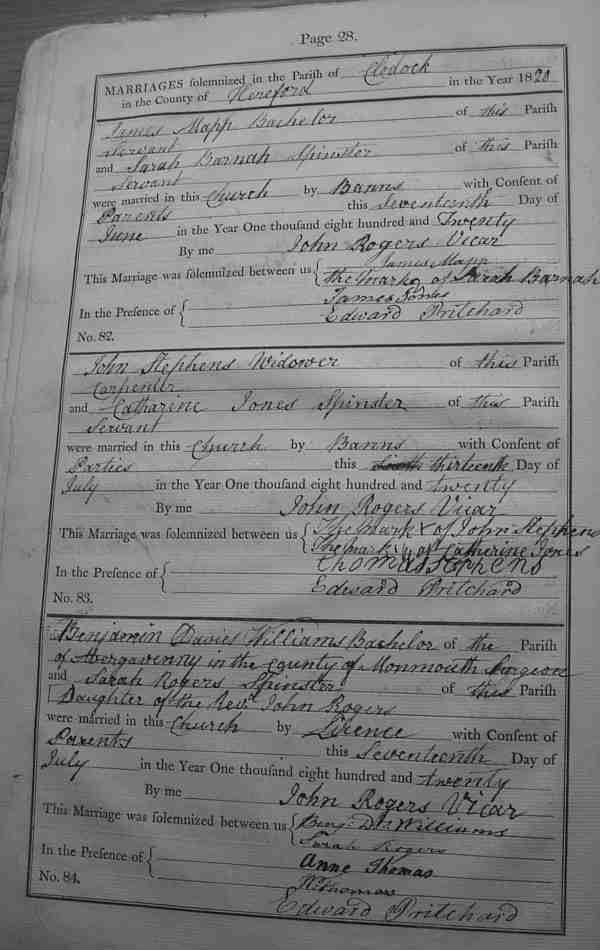 Page 28.
MARRIAGES solemnized in the Parish of Clodock
in the County of Hereford in the Year 1820
James Mapp Bachelor of this Parish
Servant
and Sarah Barnah Spinster of this Parish
Servant
were married in this Church by Banns with Consent of
Parents this Seventeenth Day of
June in the Year One thousand eight hundred and Twenty
By me John Rogers Vicar
This Marriage was solemnized between us { James Mapp
the mark of Sarah Barnah
In the Presence of { James Jones
Edward Pritchard
No. 82.
John Stephens Widower of this Parish
Carpenter
and Catharine Jones Spinster of this Parish
Servant
were married in this Church by Banns with Consent of
Parties this thirteenth Day of
July in the Year One thousand eight hundred and twenty
By me John Rogers Vicar
This Marriage was solemnized between us { The Mark x of John Stephens
The Mark of Catherine Jones
In the Presence of { Thomas Stephens
Edward Pritchard
No. 83.
Benjamin Davies Williams Bachelor of the Parish
of Abergavenny in the County of Monmouth Surgeon
and Sarah Rogers Spinster of this Parish
Daughter of the Revd. John Rogers
were married in this Church by Licence with Consent of
Parents this Seventeenth Day of
July in the Year One thousand eight hundred and twenty
By me John Rogers Vicar
This Marriage was solemnized between us { Benj: Ds. Williams
Sarah Rogers
In the Presence of { Anne Thomas
Thomas
No. 84.
Edward Pritchard